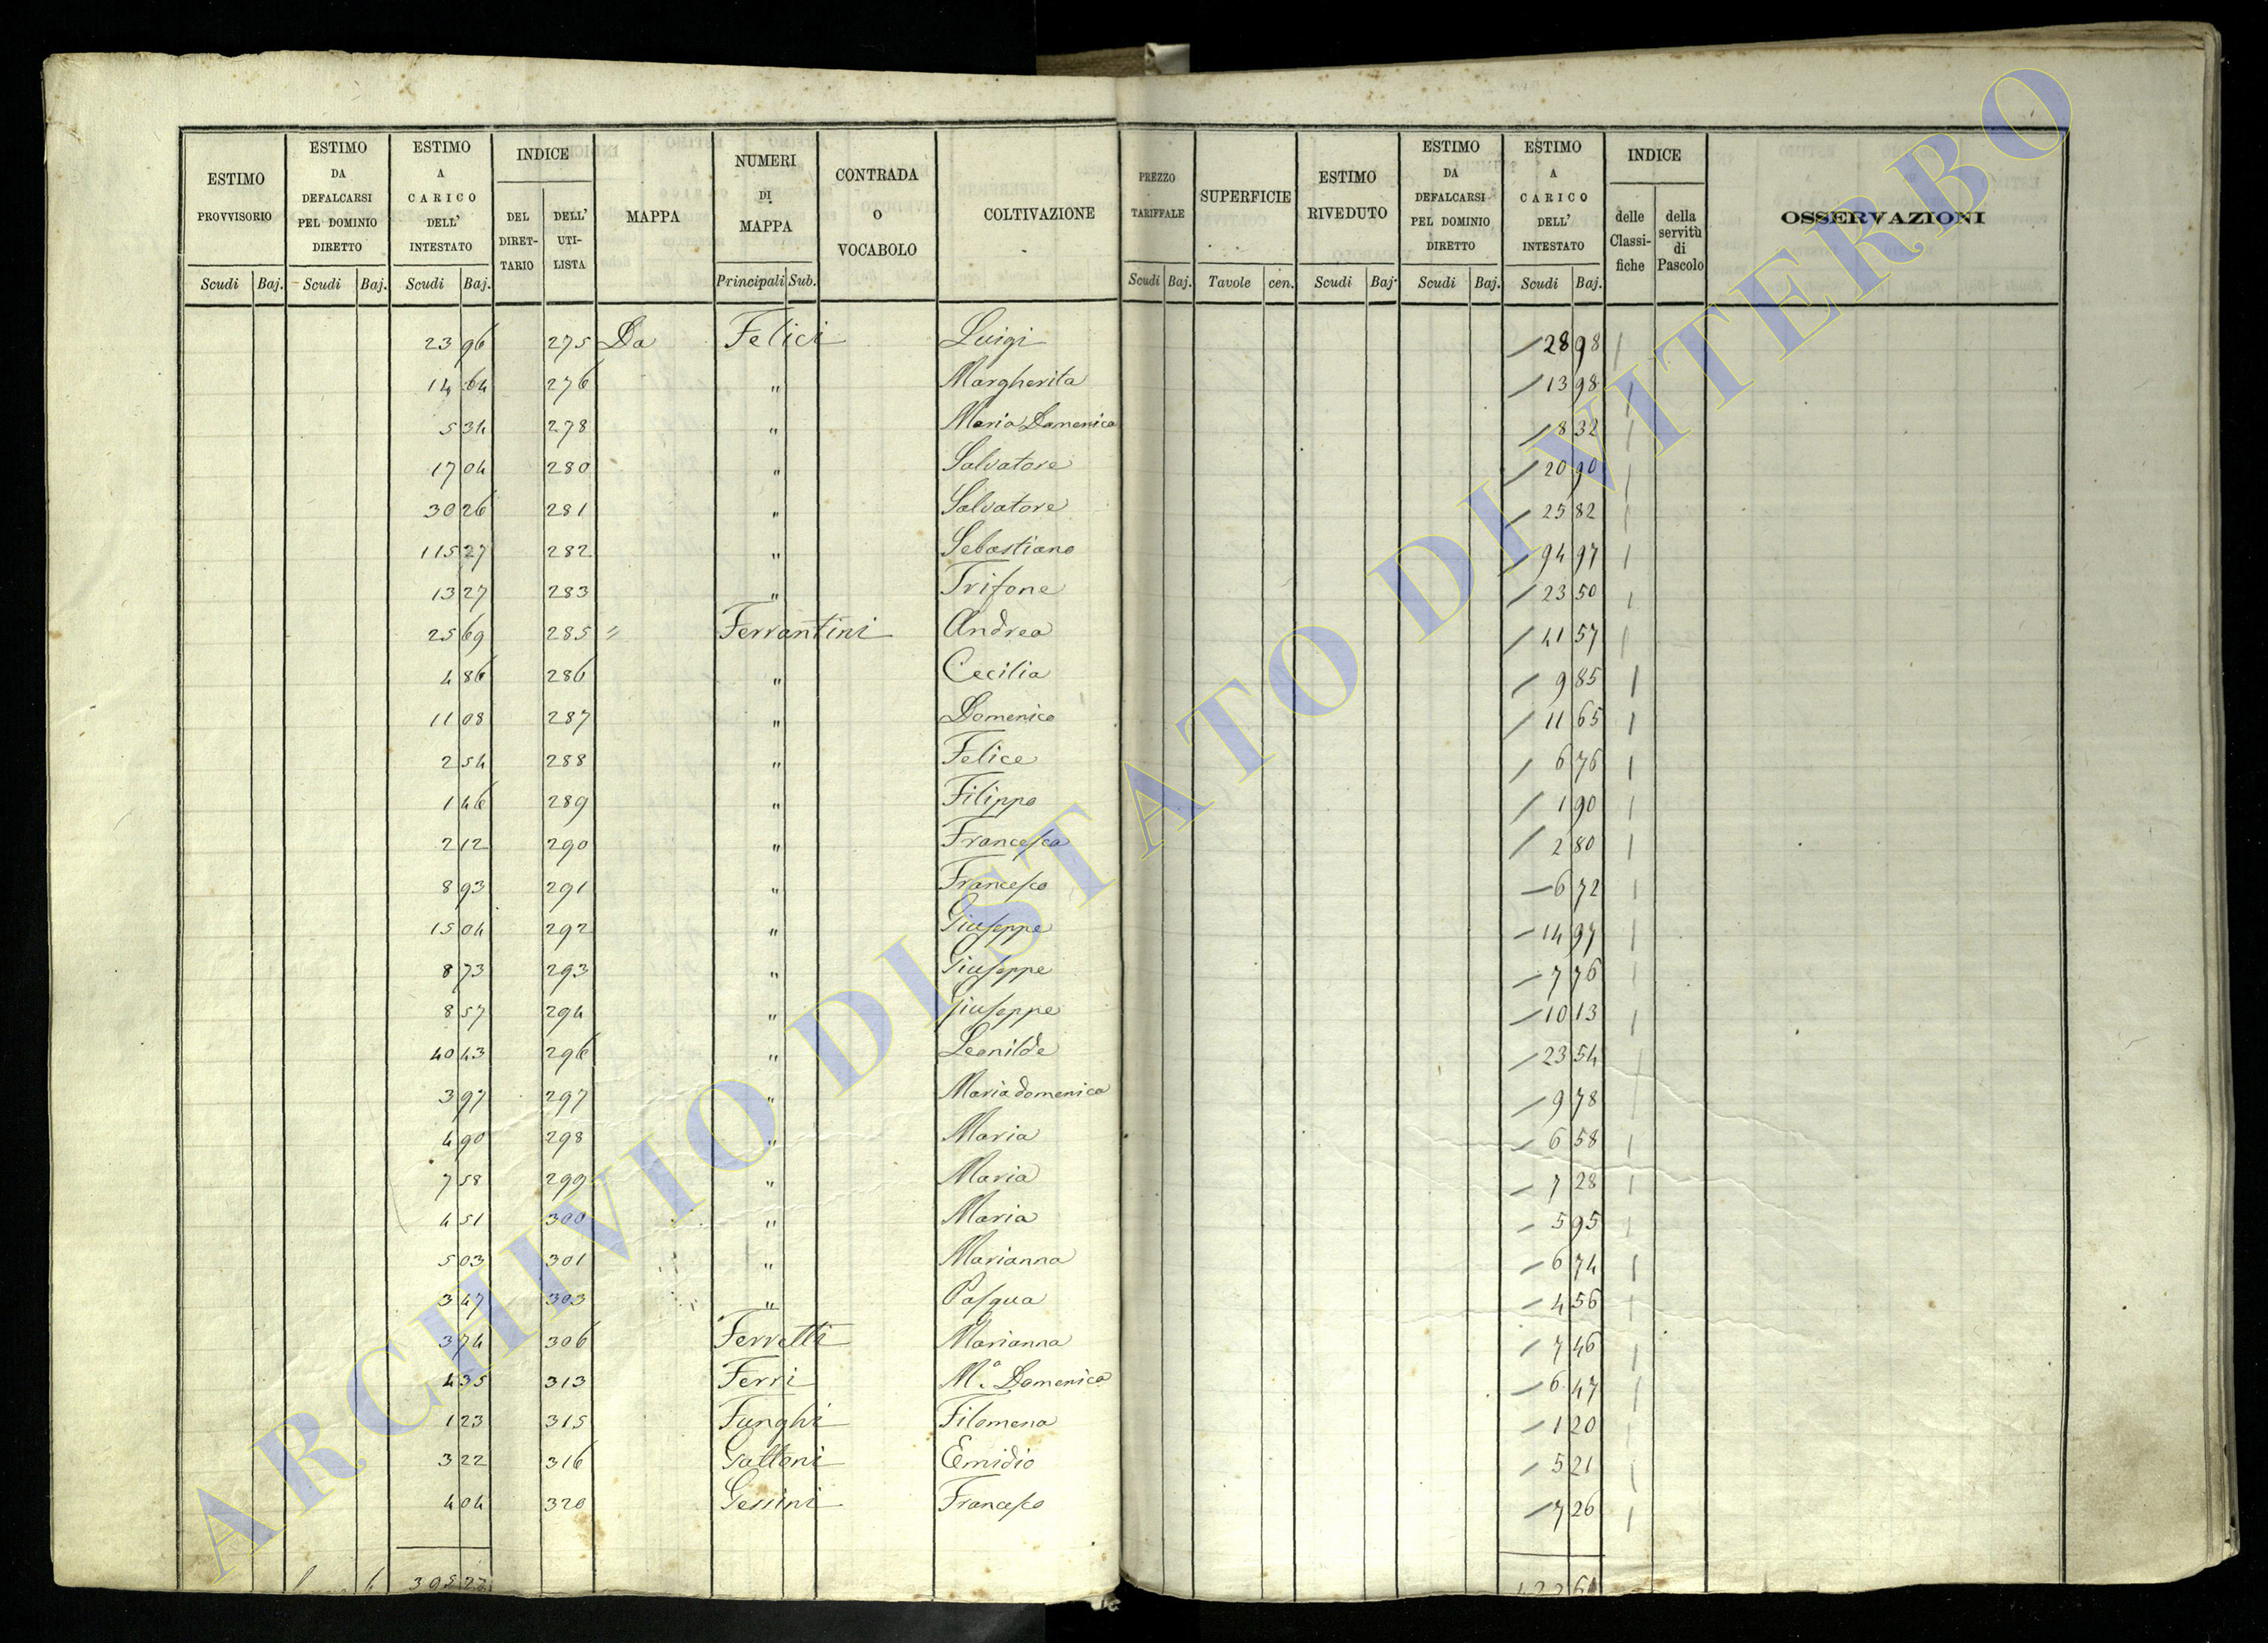 ESTIMO PROVVISORIO Scudi Baj.
ESTIMO DA DEFALCARSI PEL DOMINIO DIRETTO Scudi Baj.
ESTIMO A CARICO DELL' INTESTATO Scudi Baj.
INDICE DEL DIRET- TARIO DELL' UTI- LISTA
MAPPA
NUMERI DI MAPPA Principali Sub.
CONTRADA O VOCABOLO
COLTIVAZIONE
PREZZO TARIFFALE Scudi Baj.
SUPERFICIE Tavole cen.
ESTIMO RIVEDUTO Scudi Baj.
ESTIMO DA DEFALCARSI PEL DOMINIO DIRETTO Scudi Baj.
ESTIMO A CARICO DELL' INTESTATO Scudi Baj.
INDICE delle Classi- fiche della servitù di Pascolo
OSSERVAZIONI
23 96 275 Da Felici Luigi 28 98
14 64 276 " Margherita 13 98
5 34 278 " Maria Domenica 8 32
17 04 280 " Salvatore 20 90
30 26 281 " Salvatore 25 82
115 27 282 " Sebastiano 94 97
13 27 283 " Trifone 23 50
25 69 285 " Ferrantini Andrea 41 57
4 86 286 " Cecilia 9 85
11 08 287 " Domenico 11 65
2 54 288 " Felice 6 76
1 46 289 " Filippo 1 90
2 12 290 " Francesca 2 80
8 93 291 " Francesco 6 72
15 04 292 " Giuseppe 14 97
8 73 293 " Giuseppe 7 76
8 57 294 " Giuseppe 10 13
40 43 296 " Leonilde 23 54
3 97 297 " Maria domenica 9 78
4 90 298 " Maria 6 58
7 58 299 " Maria 7 28
4 51 300 " Maria 5 95
5 03 301 " Marianna 6 74
3 47 303 " Pasqua 4 56
3 74 306 Ferretti Marianna 7 46
4 35 313 Ferri M.a Domenica 6 47
1 23 315 Funghi Filomena 1 20
3 22 316 Gattoni Emidio 5 21
4 04 320 Gessini Francesco 7 26
ARCHIVIO DI STATO DI VITERBO